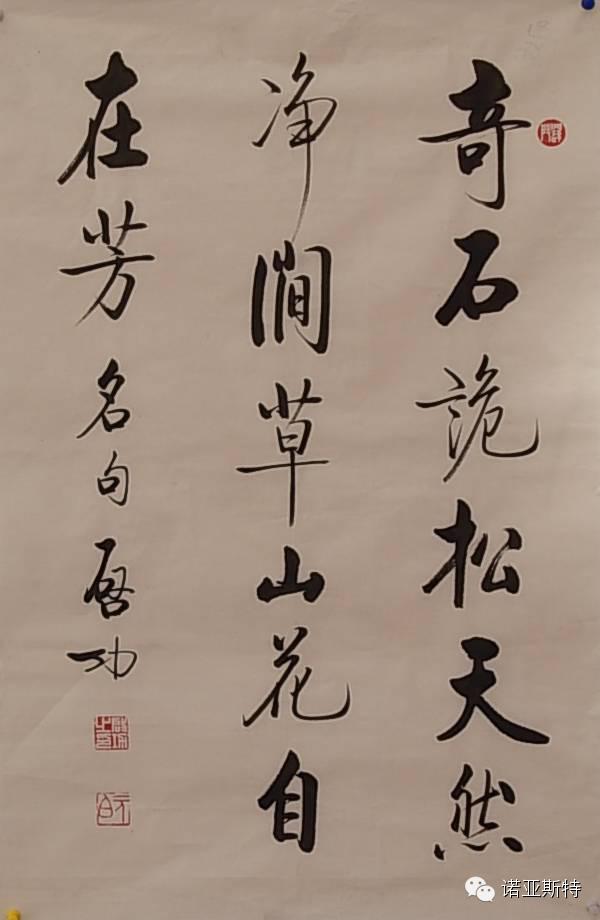 奇石詭松天然
净澗草山花自
在芳 名句 啓功
诺亚斯特